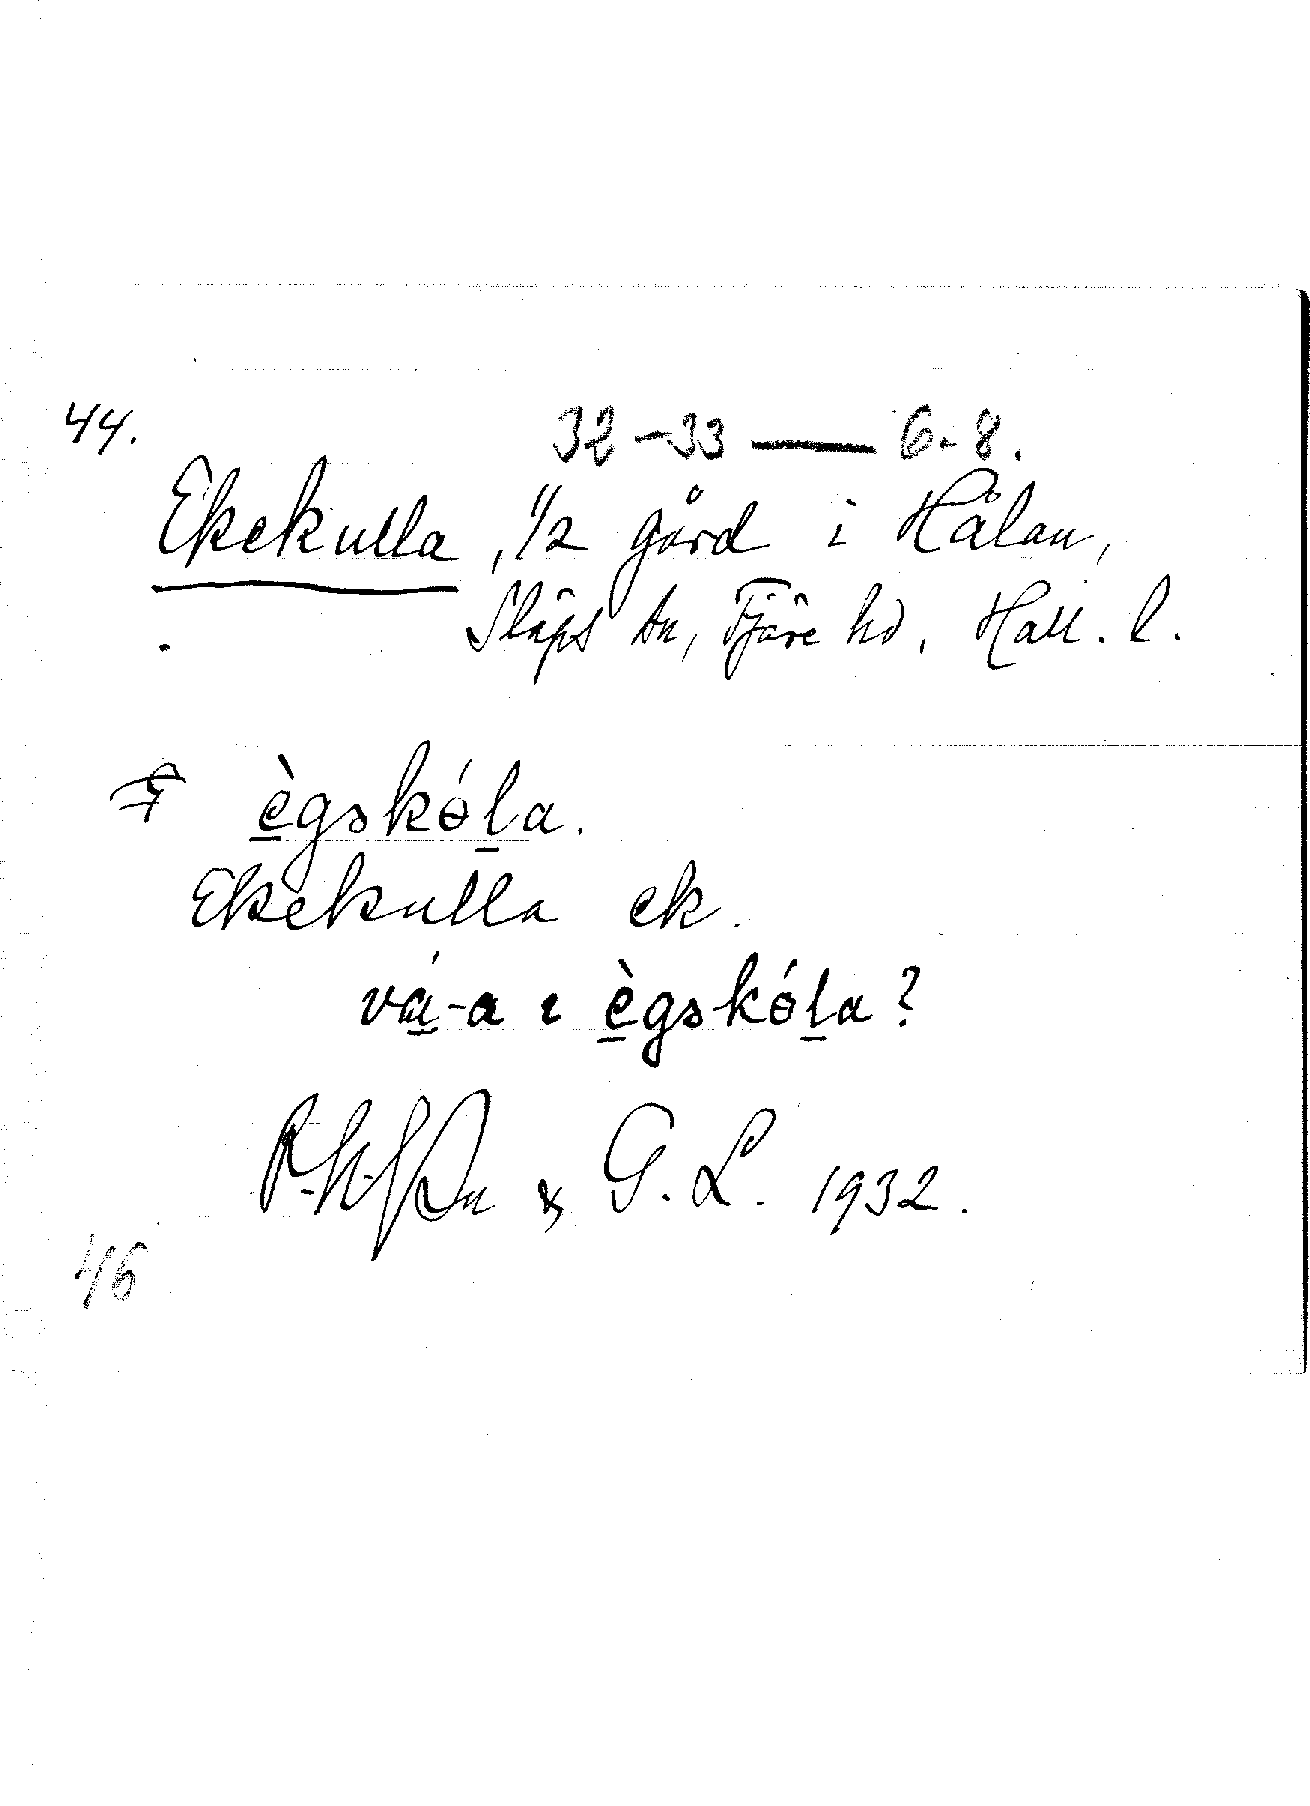 44.
32-33 — 6-8.
Ekekulla, 1/2 gård i Hålan,
Släps sn, Fjäre hd, Hall. l.
ègəkɵ́la.
Ekekulla ek.
vá-a ɩ ègəkɵ́la?
& G. L. 1932.
46